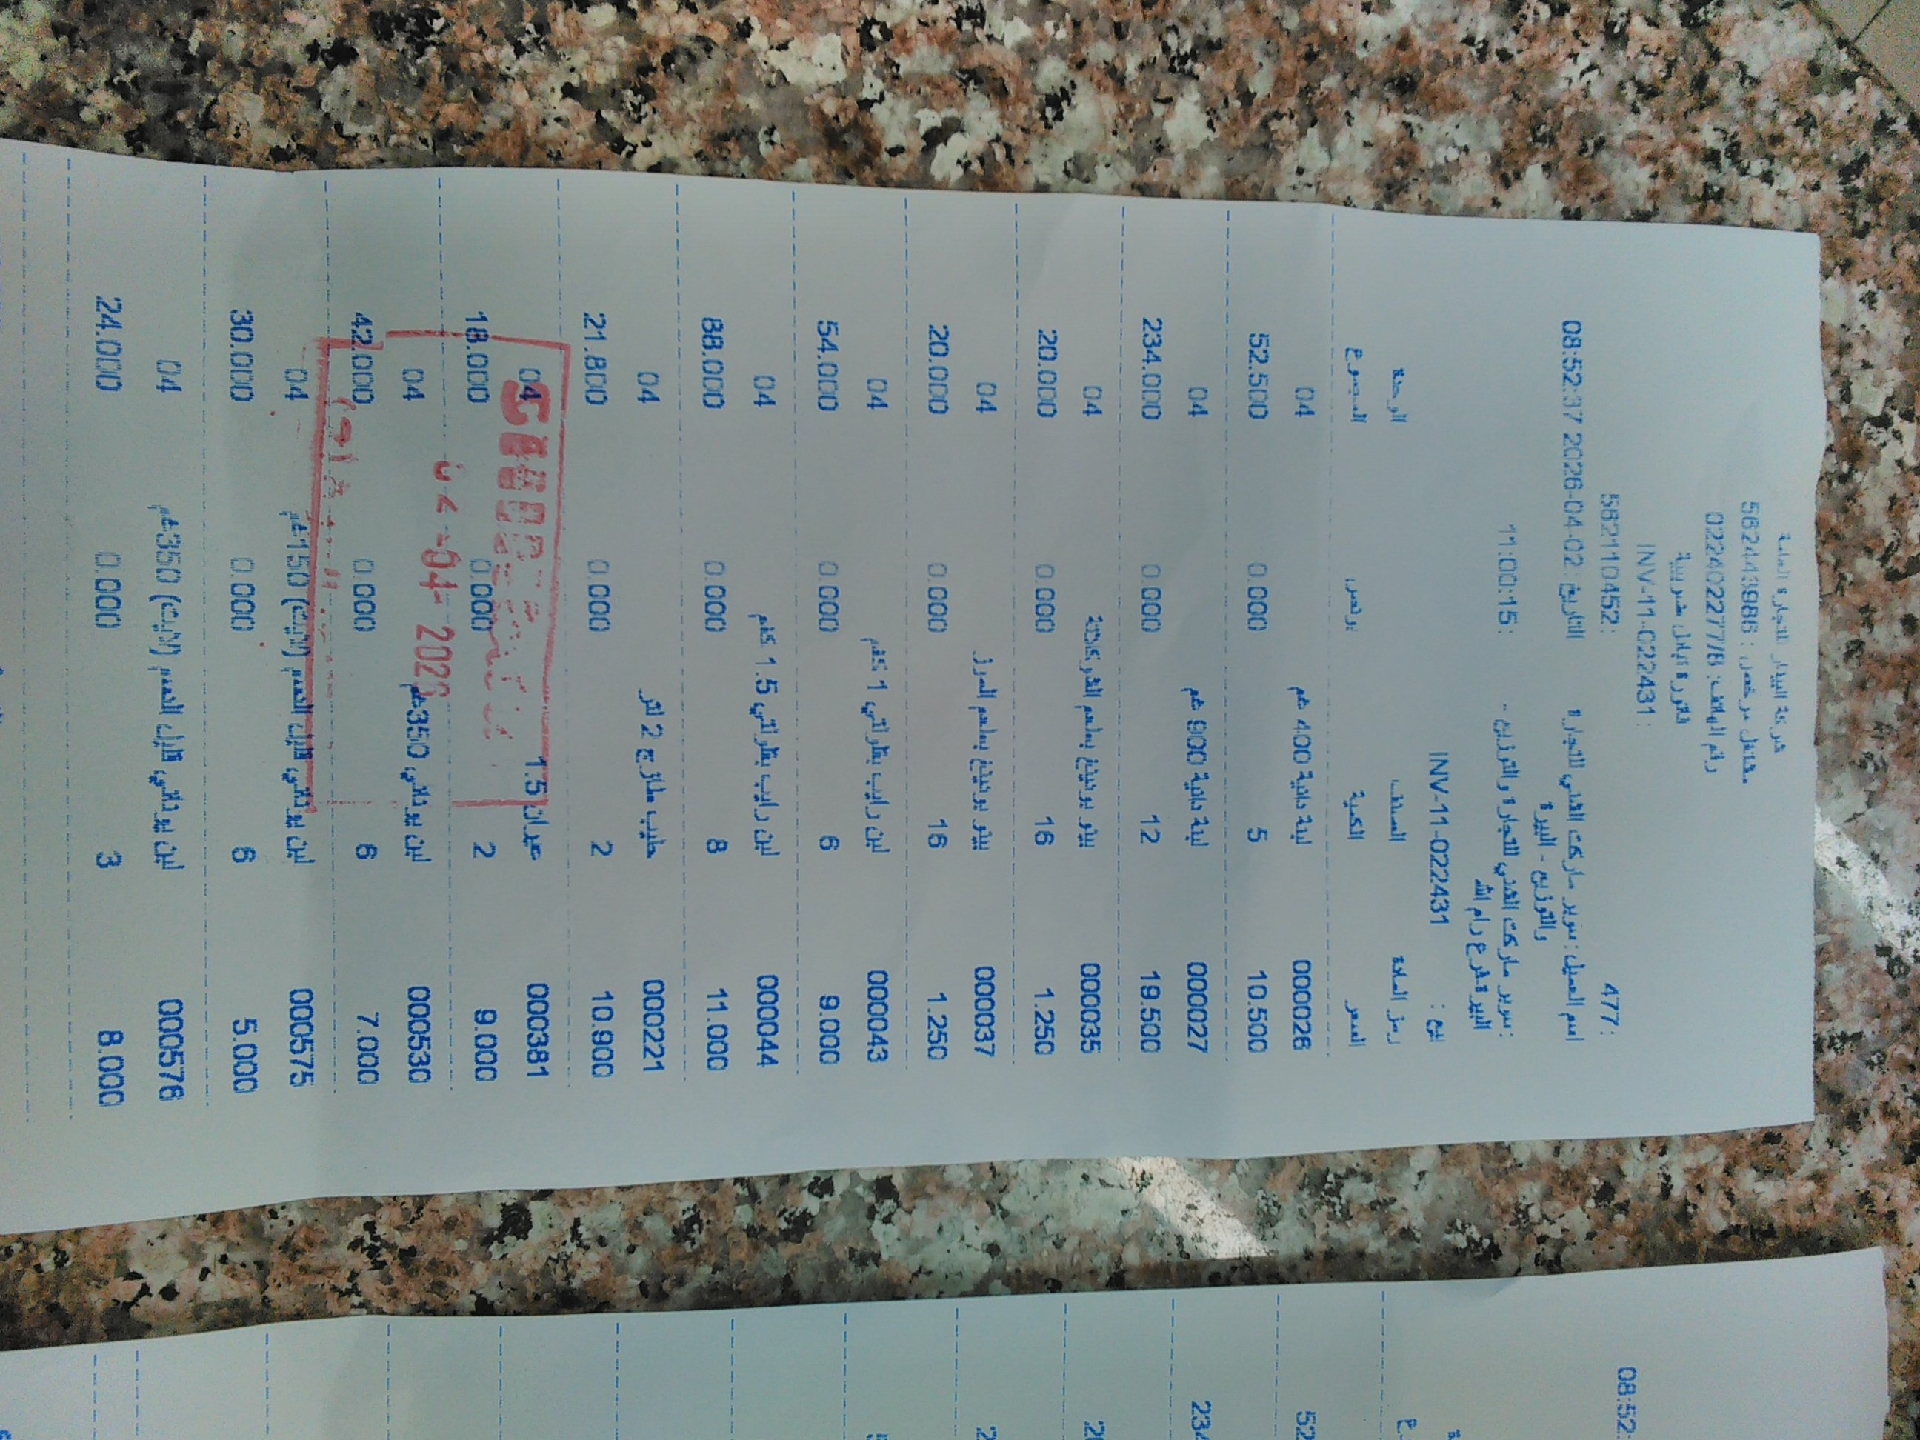 شركة البيدار للتجارة العامة
مشتغل مرخص : 562443986
رقم الهاتف: 022402277/8
فاتورة ارسال ضريبية
INV-11-022431 :
562110452 :
477 :
اسم العميل : سوبر ماركت الغني للتجارة
والتوزيع - البيرة
التاريخ : 02-04-2026 08:52:37
: سوبر ماركت الغني للتجارة والتوزيع -
البيرة فرع رام الله
11:00:15 :
بيع : INV-11-022431
رمز المادة الصنف الوحدة
السعر الكمية بونص المجموع
000028 لبنة دانية 400 غم 04
10.500 5 0.000 52.500
000027 لبنة دانية 900 غم 04
19.500 12 0.000 234.000
000035 04
1.250 16 0.000 20.000
000037 04
1.250 16 0.000 20.000
000043 لبن رايب بقر لتي 1 كغم 04
9.000 6 0.000 54.000
000044 لبن رايب بقر لتي 1.5 كغم 04
11.000 8 0.000 88.000
000221 حليب طازج 2 لتر 04
10.900 2 0.000 21.800
000381 1.5 04
9.000 2 0.000 18.000
000530 لبن يوناني 350غم 04
7.000 6 0.000 42.000
000575 لبن يوناني قليل الدسم (لايت) 150غم 04
5.000 6 0.000 30.000
000576 لبن يوناني قليل الدسم (لايت) 350غم 04
8.000 3 0.000 24.000
04- 2026
08:52:
52
234